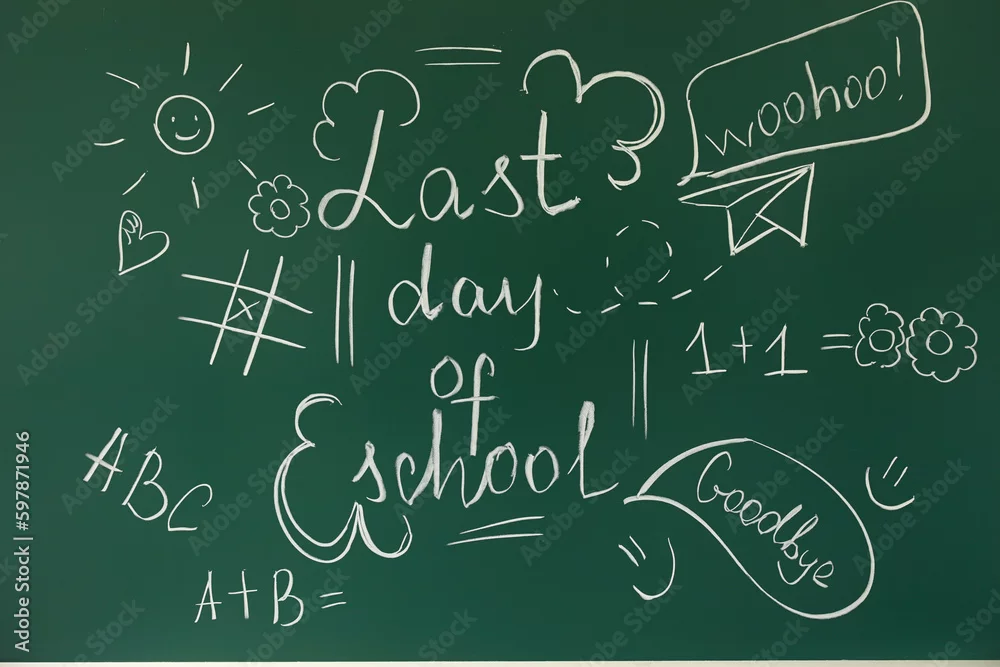 woohoo!
Last
day
of
school
1+1=
ABC
Goodbye
A+B=
x
Adobe Stock | #597871946
Adobe Stock